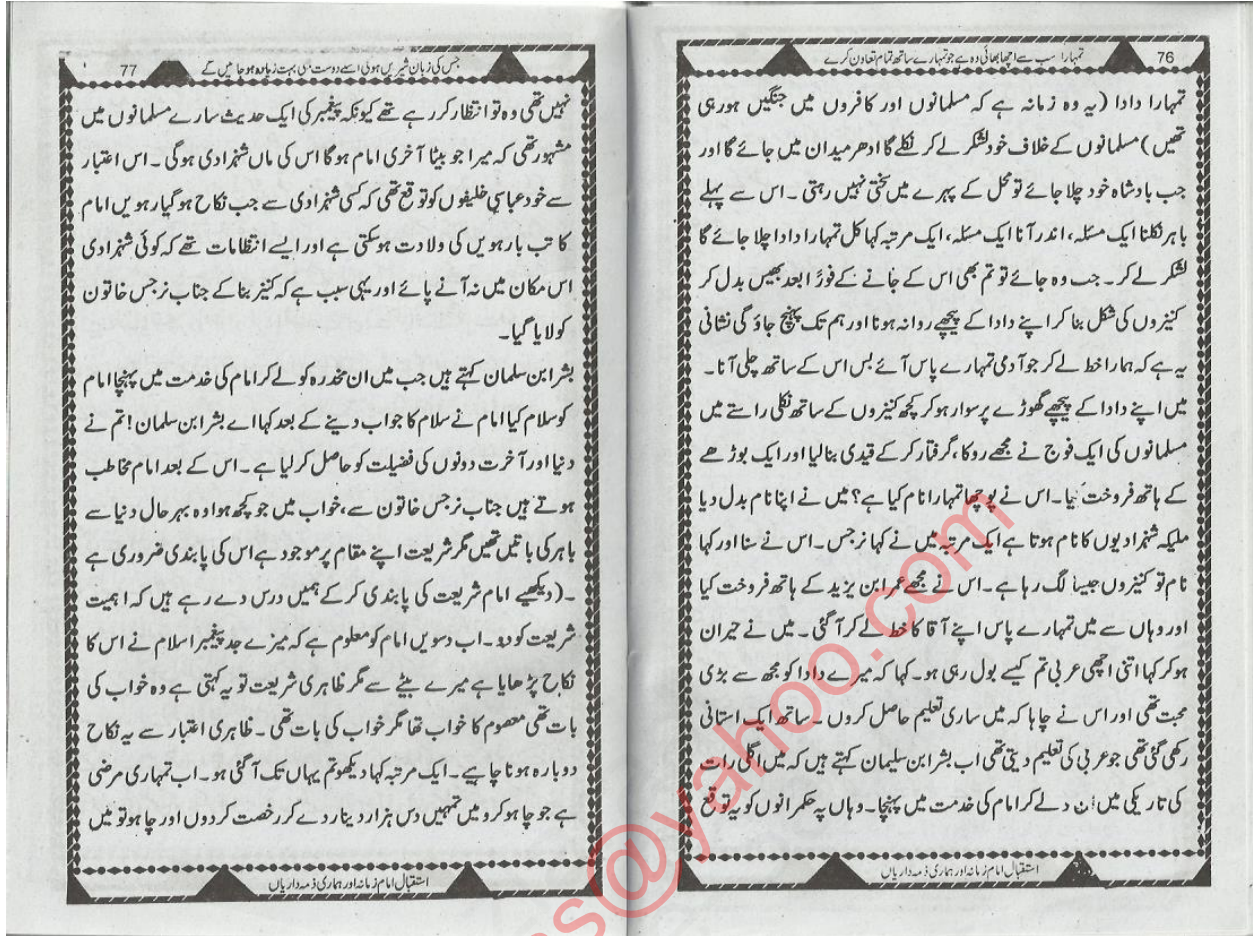 76
تمہارا سب سے اچھا بھائی وہ ہے جو تمہارے ساتھ تمام تعاون کرے
تمہارا دادا (یہ وہ زمانہ ہے کہ مسلمانوں اور کافروں میں جنگیں ہورہی
تھیں) مسلمانوں کے خلاف خود لشکر لے کر نکلے گا ادھر میدان میں جائے گا اور
جب بادشاہ خود چلا جائے تو محل کے پہرے میں سختی نہیں رہتی ۔ اس سے پہلے
باہر نکلنا ایک مسئلہ، اندر آنا ایک مسئلہ، ایک مرتبہ کہا کل تمہارا دادا چلا جائے گا
لشکر لے کر ۔ جب وہ جائے تو تم بھی اس کے جانے کے فوراً بعد بھیس بدل کر
کنیزوں کی شکل بنا کر اپنے دادا کے پیچھے روانہ ہونا اور ہم تک پہنچ جاؤ گی نشانی
یہ ہے کہ ہمارا خط لے کر جو آدمی تمہارے پاس آئے بس اس کے ساتھ چلی آنا ۔
میں اپنے دادا کے پیچھے گھوڑے پر سوار ہو کر کچھ کنیزوں کے ساتھ نکلی راستے میں
مسلمانوں کی ایک فوج نے مجھے روکا، گرفتار کر کے قیدی بنالیا اور ایک بوڑھے
کے ہاتھ فروخت کیا ۔ اس نے پوچھا تمہارا نام کیا ہے؟ میں نے اپنا نام بدل دیا
ملیکہ شہزادیوں کا نام ہوتا ہے ایک مرتبہ میں نے کہا نرجس ۔ اس نے سنا اور کہا
نام تو کنیزوں جیسا لگ رہا ہے ۔ اس نے مجھے عمر ابن یزید کے ہاتھ فروخت کیا
اور وہاں سے میں تمہارے پاس اپنے آقا کا خط لے کر آگئی ۔ میں نے حیران
ہو کر کہا اتنی اچھی عربی تم کیسے بول رہی ہو ۔ کہا کہ میرے دادا کو مجھ سے بڑی
محبت تھی اور اس نے چاہا کہ میں ساری تعلیم حاصل کروں ۔ ساتھ ایک استانی
رکھی گئی تھی جو عربی کی تعلیم دیتی تھی اب بشر ابن سلیمان کہتے ہیں کہ میں اگلی رات
کی تاریکی میں ان کو لے کر امام کی خدمت میں پہنچا ۔ وہاں پہ حکمرانوں کو یہ توقع
استقبال امام زمانہ اور ہماری ذمہ داریاں
77
جس کی زبان شیریں ہوئی اسے دوست بھی بہت زیادہ ہو جائیں گے
نہیں تھی وہ تو انتظار کر رہے تھے کیونکہ پیغمبر کی ایک حدیث سارے مسلمانوں میں
مشہور تھی کہ میرا جو بیٹا آخری امام ہوگا اس کی ماں شہزادی ہوگی ۔ اس اعتبار
سے خود عباسی خلیفوں کو توقع تھی کہ کسی شہزادی سے جب نکاح ہو گیارہویں امام
کا تب بارہویں کی ولادت ہوسکتی ہے اور ایسے انتظامات تھے کہ کوئی شہزادی
اس مکان میں نہ آنے پائے اور یہی سبب ہے کہ کنیز بنا کے جناب نرجس خاتون
کو لایا گیا ۔
بشر ابن سلمان کہتے ہیں جب میں ان مخدرہ کو لے کر امام کی خدمت میں پہنچا امام
کو سلام کیا امام نے سلام کا جواب دینے کے بعد کہا اے بشر ابن سلمان! تم نے
دنیا اور آخرت دونوں کی فضیلت کو حاصل کر لیا ہے ۔ اس کے بعد امام مخاطب
ہوتے ہیں جناب نرجس خاتون سے، خواب میں جو کچھ ہوا وہ بہر حال دنیا سے
باہر کی باتیں تھیں مگر شریعت اپنے مقام پر موجود ہے اس کی پابندی ضروری ہے
۔ (دیکھیے امام شریعت کی پابندی کر کے ہمیں درس دے رہے ہیں کہ اہمیت
شریعت کو دو ۔ اب دسویں امام کو معلوم ہے کہ میرے جد پیغمبر اسلام نے اس کا
نکاح پڑھایا ہے میرے بیٹے سے مگر ظاہری شریعت تو یہ کہتی ہے وہ خواب کی
بات تھی معصوم کا خواب تھا مگر خواب کی بات تھی ۔ ظاہری اعتبار سے یہ نکاح
دوبارہ ہونا چاہیے ۔ ایک مرتبہ کہا دیکھو تم یہاں تک آگئی ہو ۔ اب تمہاری مرضی
ہے جو چاہو کرو میں تمہیں دس ہزار دینار دے کر رخصت کر دوں اور چاہو تو میں
استقبال امام زمانہ اور ہماری ذمہ داریاں
s@yahoo.com